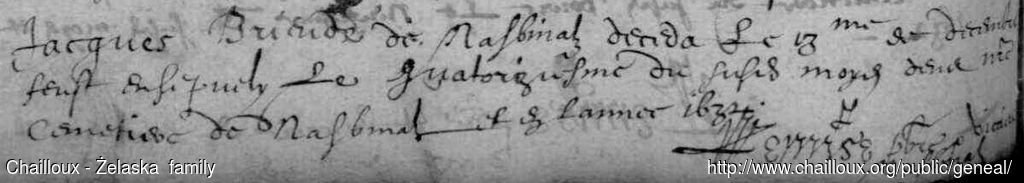 Jacques Briende de Nasbinalz deceda Le 13 me de decembre
feust ensepuely Le quatorziesme du susd moys dans
Cemetiere de Nasbinal et en Lannee 1634
Chailloux - Želaska family
http://www.chailloux.org/public/geneal/